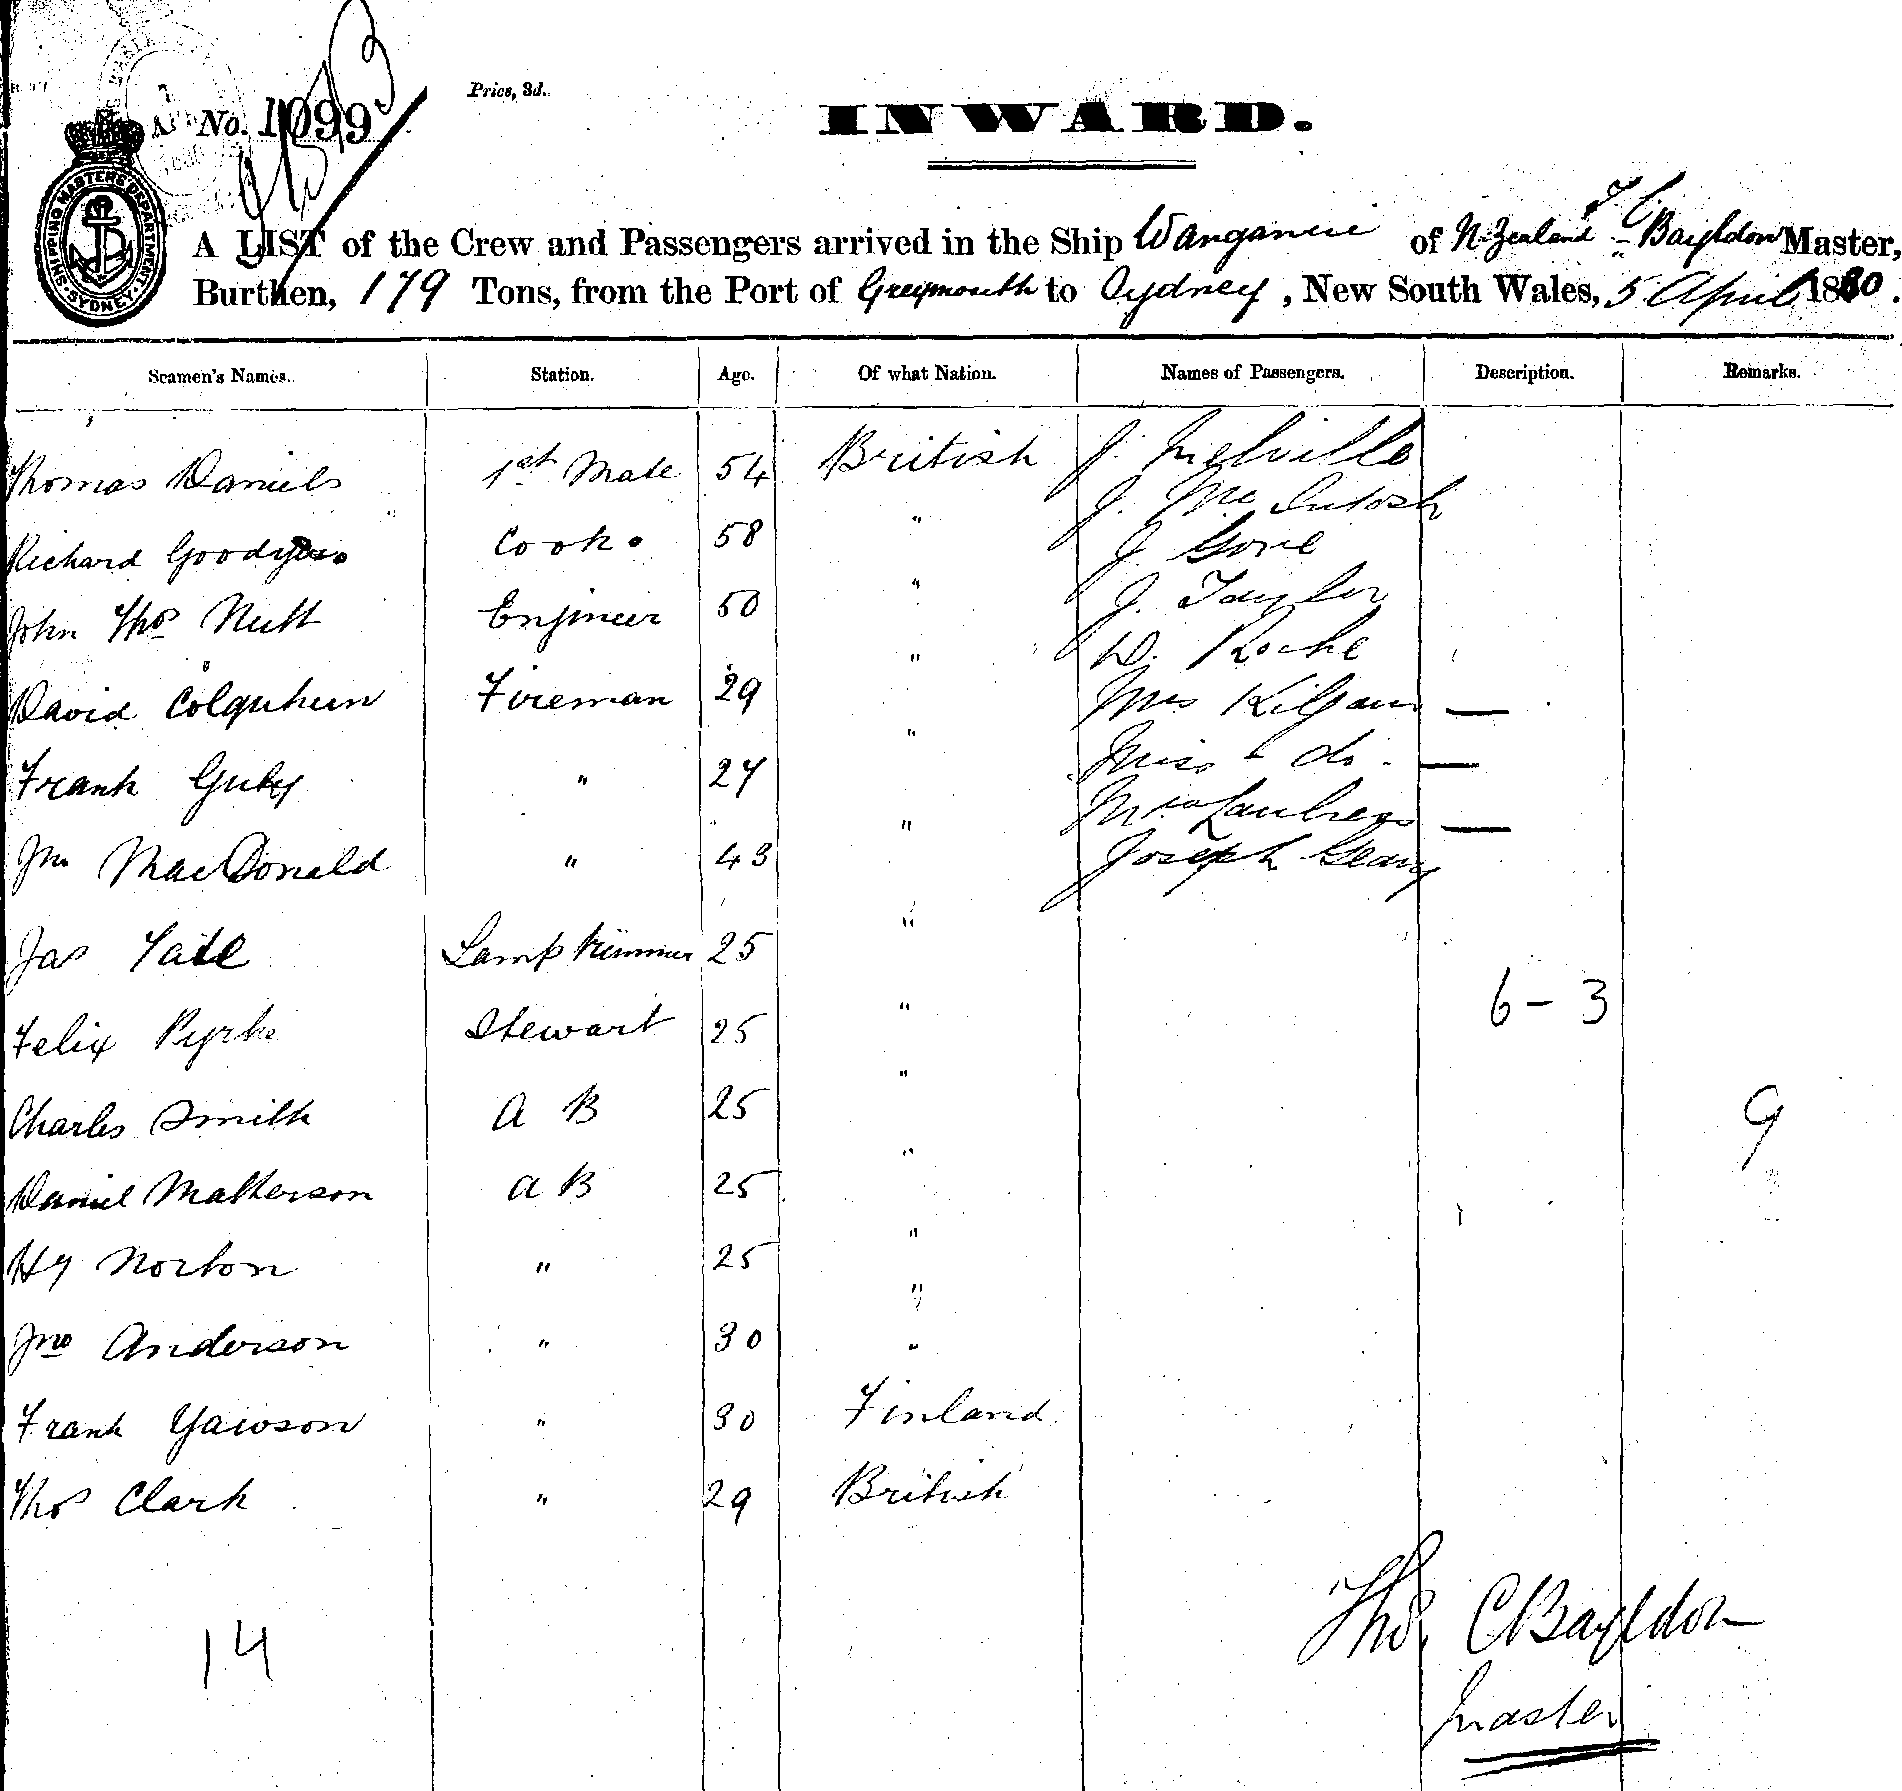 Price, 3d.
No. 1099
INWARD.
SHIPPING MASTERS DEPARTMENT SYDNEY
A LIST of the Crew and Passengers arrived in the Ship Wanganui of N. Zealand T C Bayldon Master,
Burthen, 179 Tons, from the Port of Greymouth to Sydney, New South Wales, 5 April 1880.
Seamen's Names. Station. Age. Of what Nation. Names of Passengers. Description. Remarks.
Thomas Daniels 1st Mate 54 British J. Melville
J. McIntosh
Richard Goodyer Cook. 58 " J Gove
John Thos Nutt Engineer 50 " J. Taylor
D. Roche
David Colquhun Fireman 29 " Mrs Kilgour —
Frank Guby " 27 " Miss do. —
Mrs —
Jno MacDonald " 43 " Joseph Geary
Jas Tate Lamp trimmer 25 "
Felix Stewart 25 " 6 - 3
Charles Smith A B 25 " 9
Daniel Matherson A B 25 "
Hy Norton " 25 "
Jno Anderson " 30 " "
Frank Yawson " 30 Finland
Thos Clark " 29 British
14
Thos. C Bayldon
Master